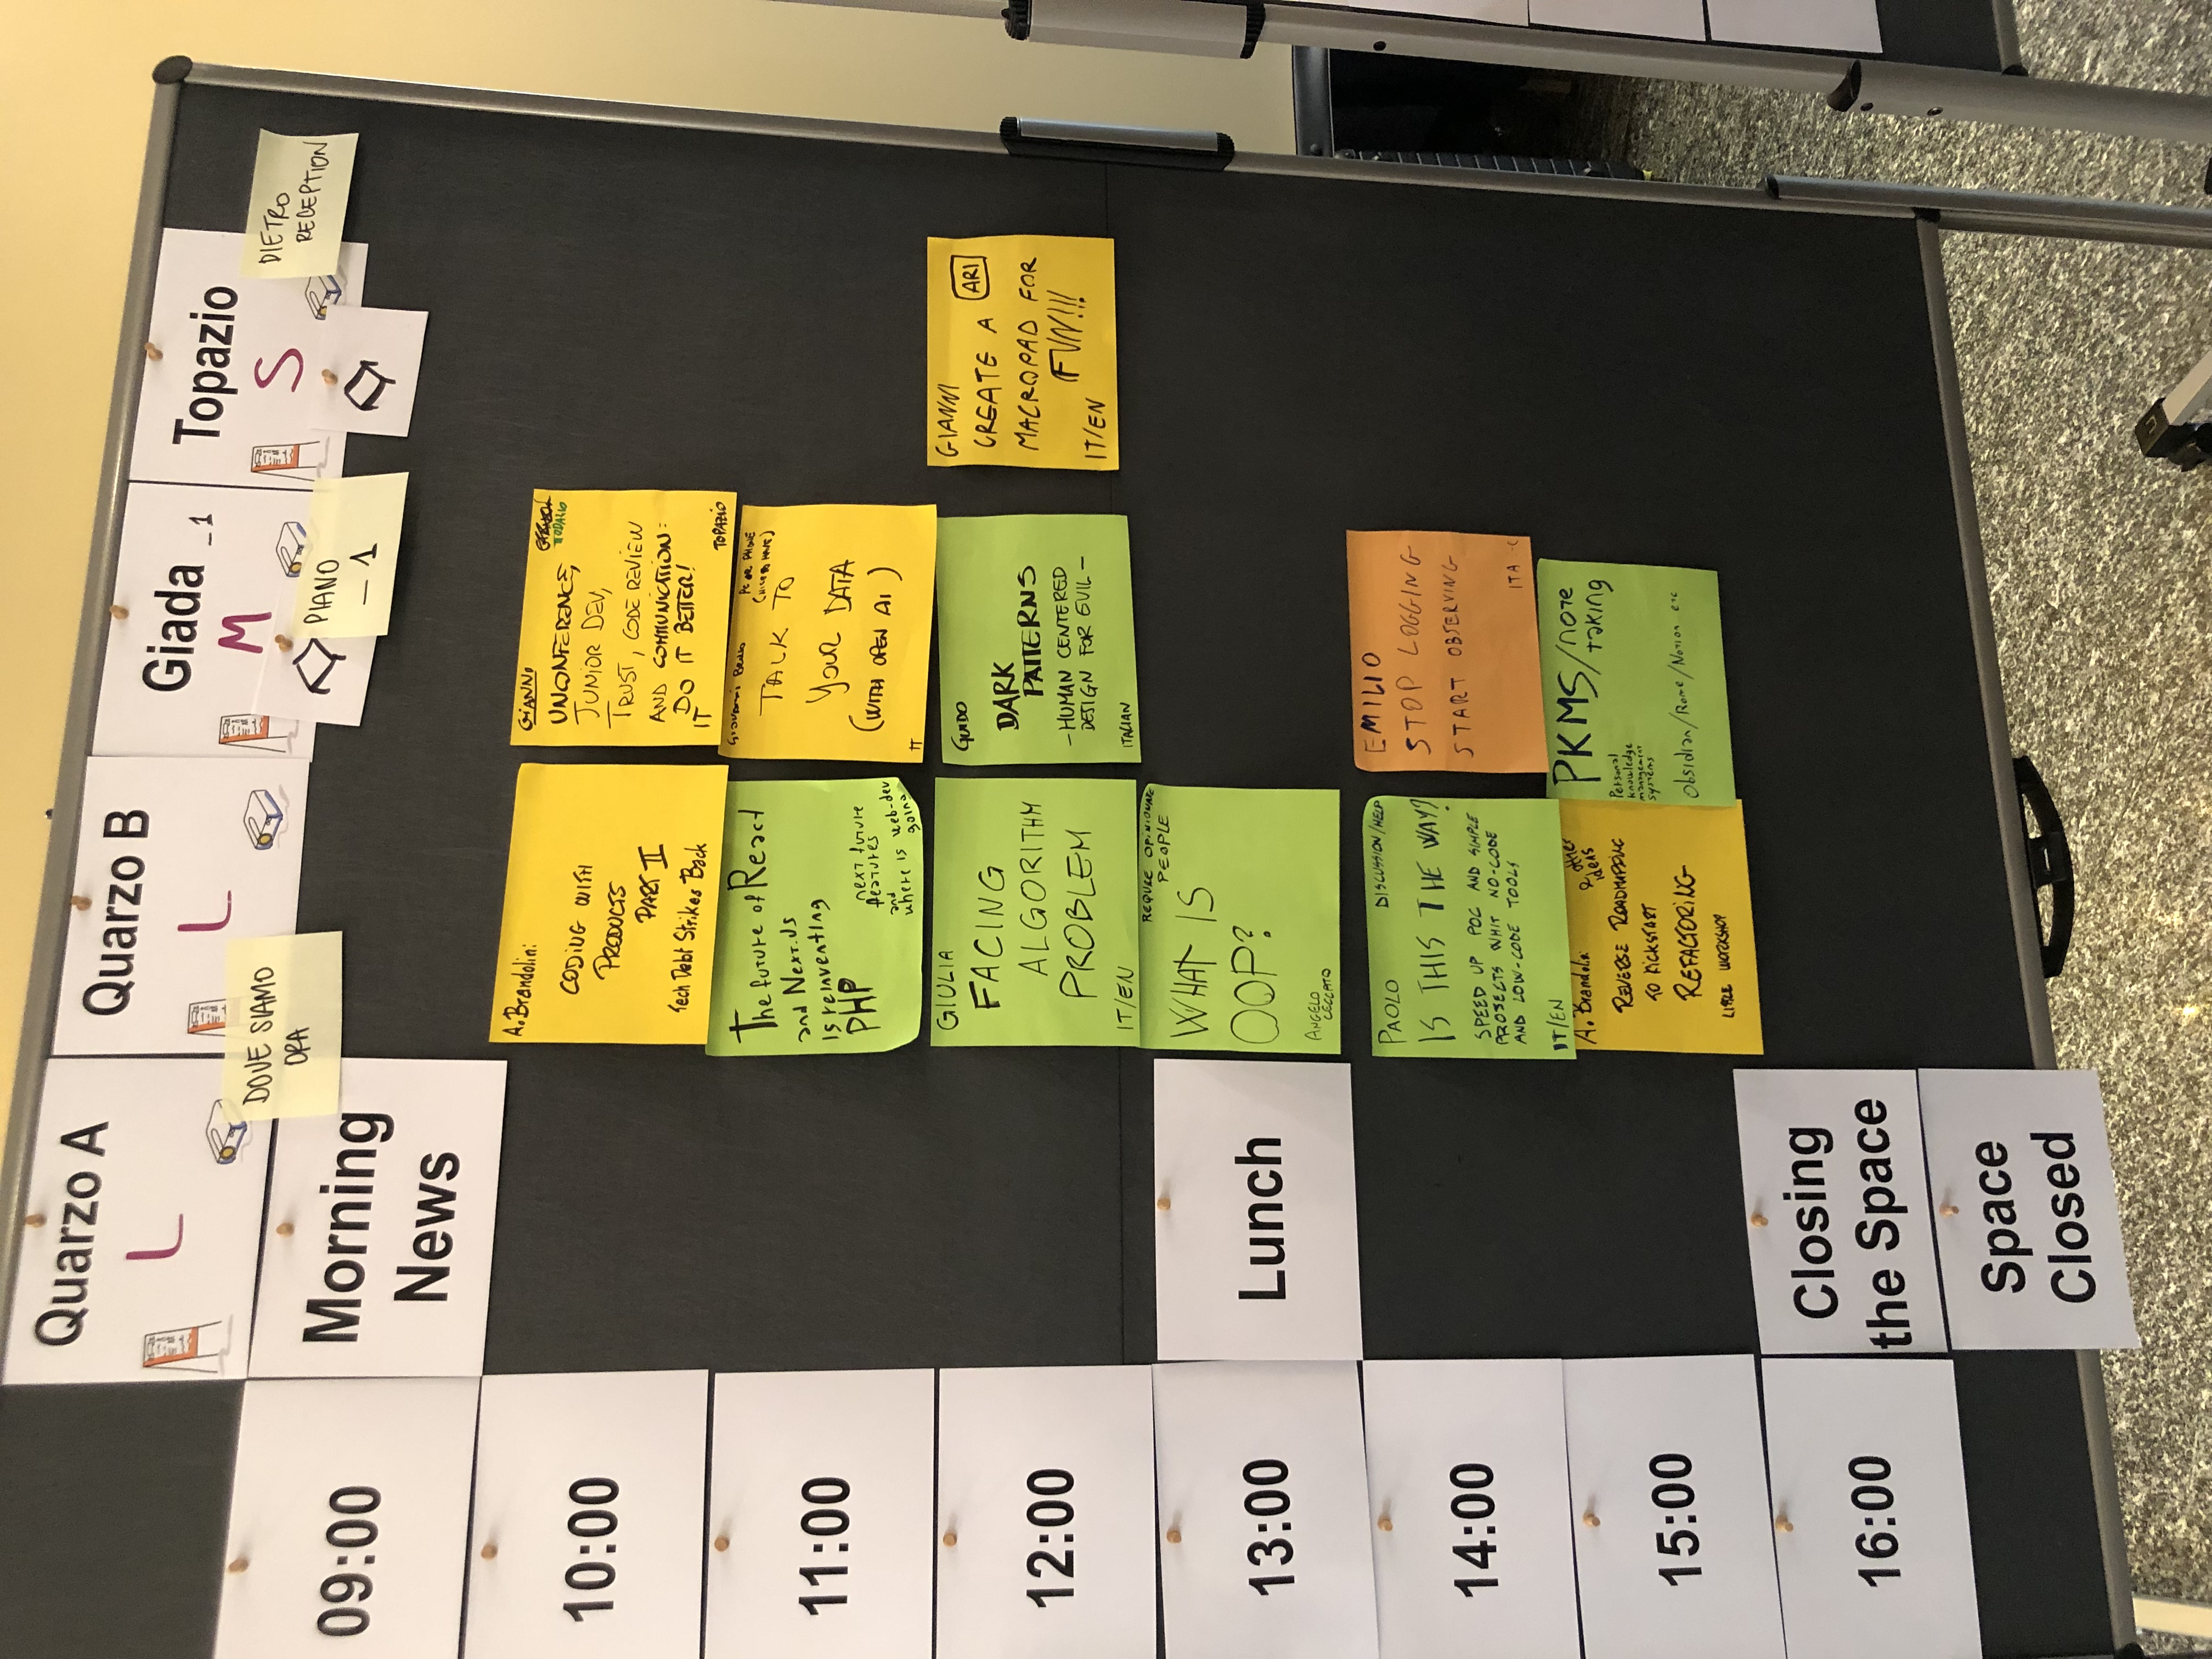 Quarzo A
L
Quarzo B
L
Giada -1
M
Topazio
S
DOVE SIAMO
ORA
PIANO
-1
DIETRO
RECEPTION
09:00
Morning
News
10:00
A. Brandolini:
CODING WITH
PRODUCTS
PART II
Tech Debt Strikes Back
GIANNI
TOPAZIO
UNCONFERENCE,
JUNIOR DEV,
TRUST, CODE REVIEW
AND COMMUNICATION:
DO IT BETTER!
IT
TOPAZIO
11:00
The future of React
and Next.Js
is reinventing
PHP
next future
features
and
where is web-dev
going
Giovanni
PC OR PHONE
(NICE TO HAVE)
TALK TO
YOUR DATA
(WITH OPEN AI)
IT
12:00
GIULIA
FACING
ALGORITHM
PROBLEM
IT/EN
GUIDO
DARK
PATTERNS
- HUMAN CENTERED
DESIGN FOR EVIL -
ITALIAN
GIANNI
ARI
CREATE A
MACROPAD FOR
FUN!!!
IT/EN
13:00
Lunch
REQURE OPINIONATE
PEOPLE
WHAT IS
OOP?
ANGELO
CECCATO
14:00
PAOLO
DISCUSSION/HELP
IS THIS THE WAY?
SPEED UP POC AND SIMPLE
PROJECTS WHIT NO-CODE
AND LOW-CODE TOOLS
IT/EN
EMILIO
STOP LOGGING
START OBSERVING
ITA
15:00
A. Brandolini
& other
ideas
REVERSE ROADMAPPING
TO KICKSTART
REFACTORING
LITTLE WORKSHOP
PKMS/note
taking
Personal
knowledge
management
systems
Obsidian/Rome/Notion etc
16:00
Closing
the Space
Space
Closed